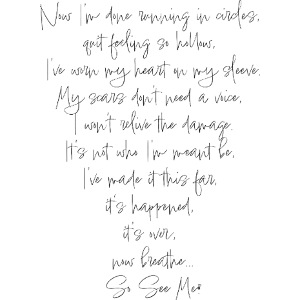 Now I'm done running in circles,
quit feeling so hollow,
I've worn my heart on my sleeve.
My scars don't need a voice,
I won't relive the damage.
It's not who I'm meant be,
I've made it this far,
it's happened,
it's over,
now breathe...
So See Me